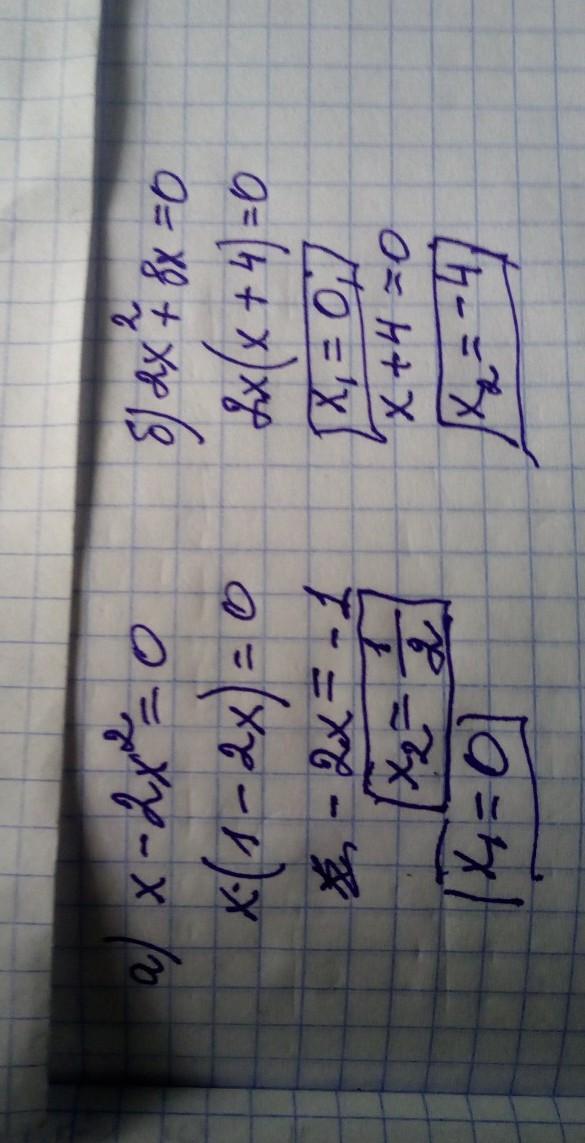 а) x - 2x² = 0
x·(1 - 2x) = 0
- 2x = -1
x₂ = 1/2
x₁ = 0
б) 2x² + 8x = 0
2x(x + 4) = 0
x₁ = 0,
x + 4 = 0
x₂ = -4